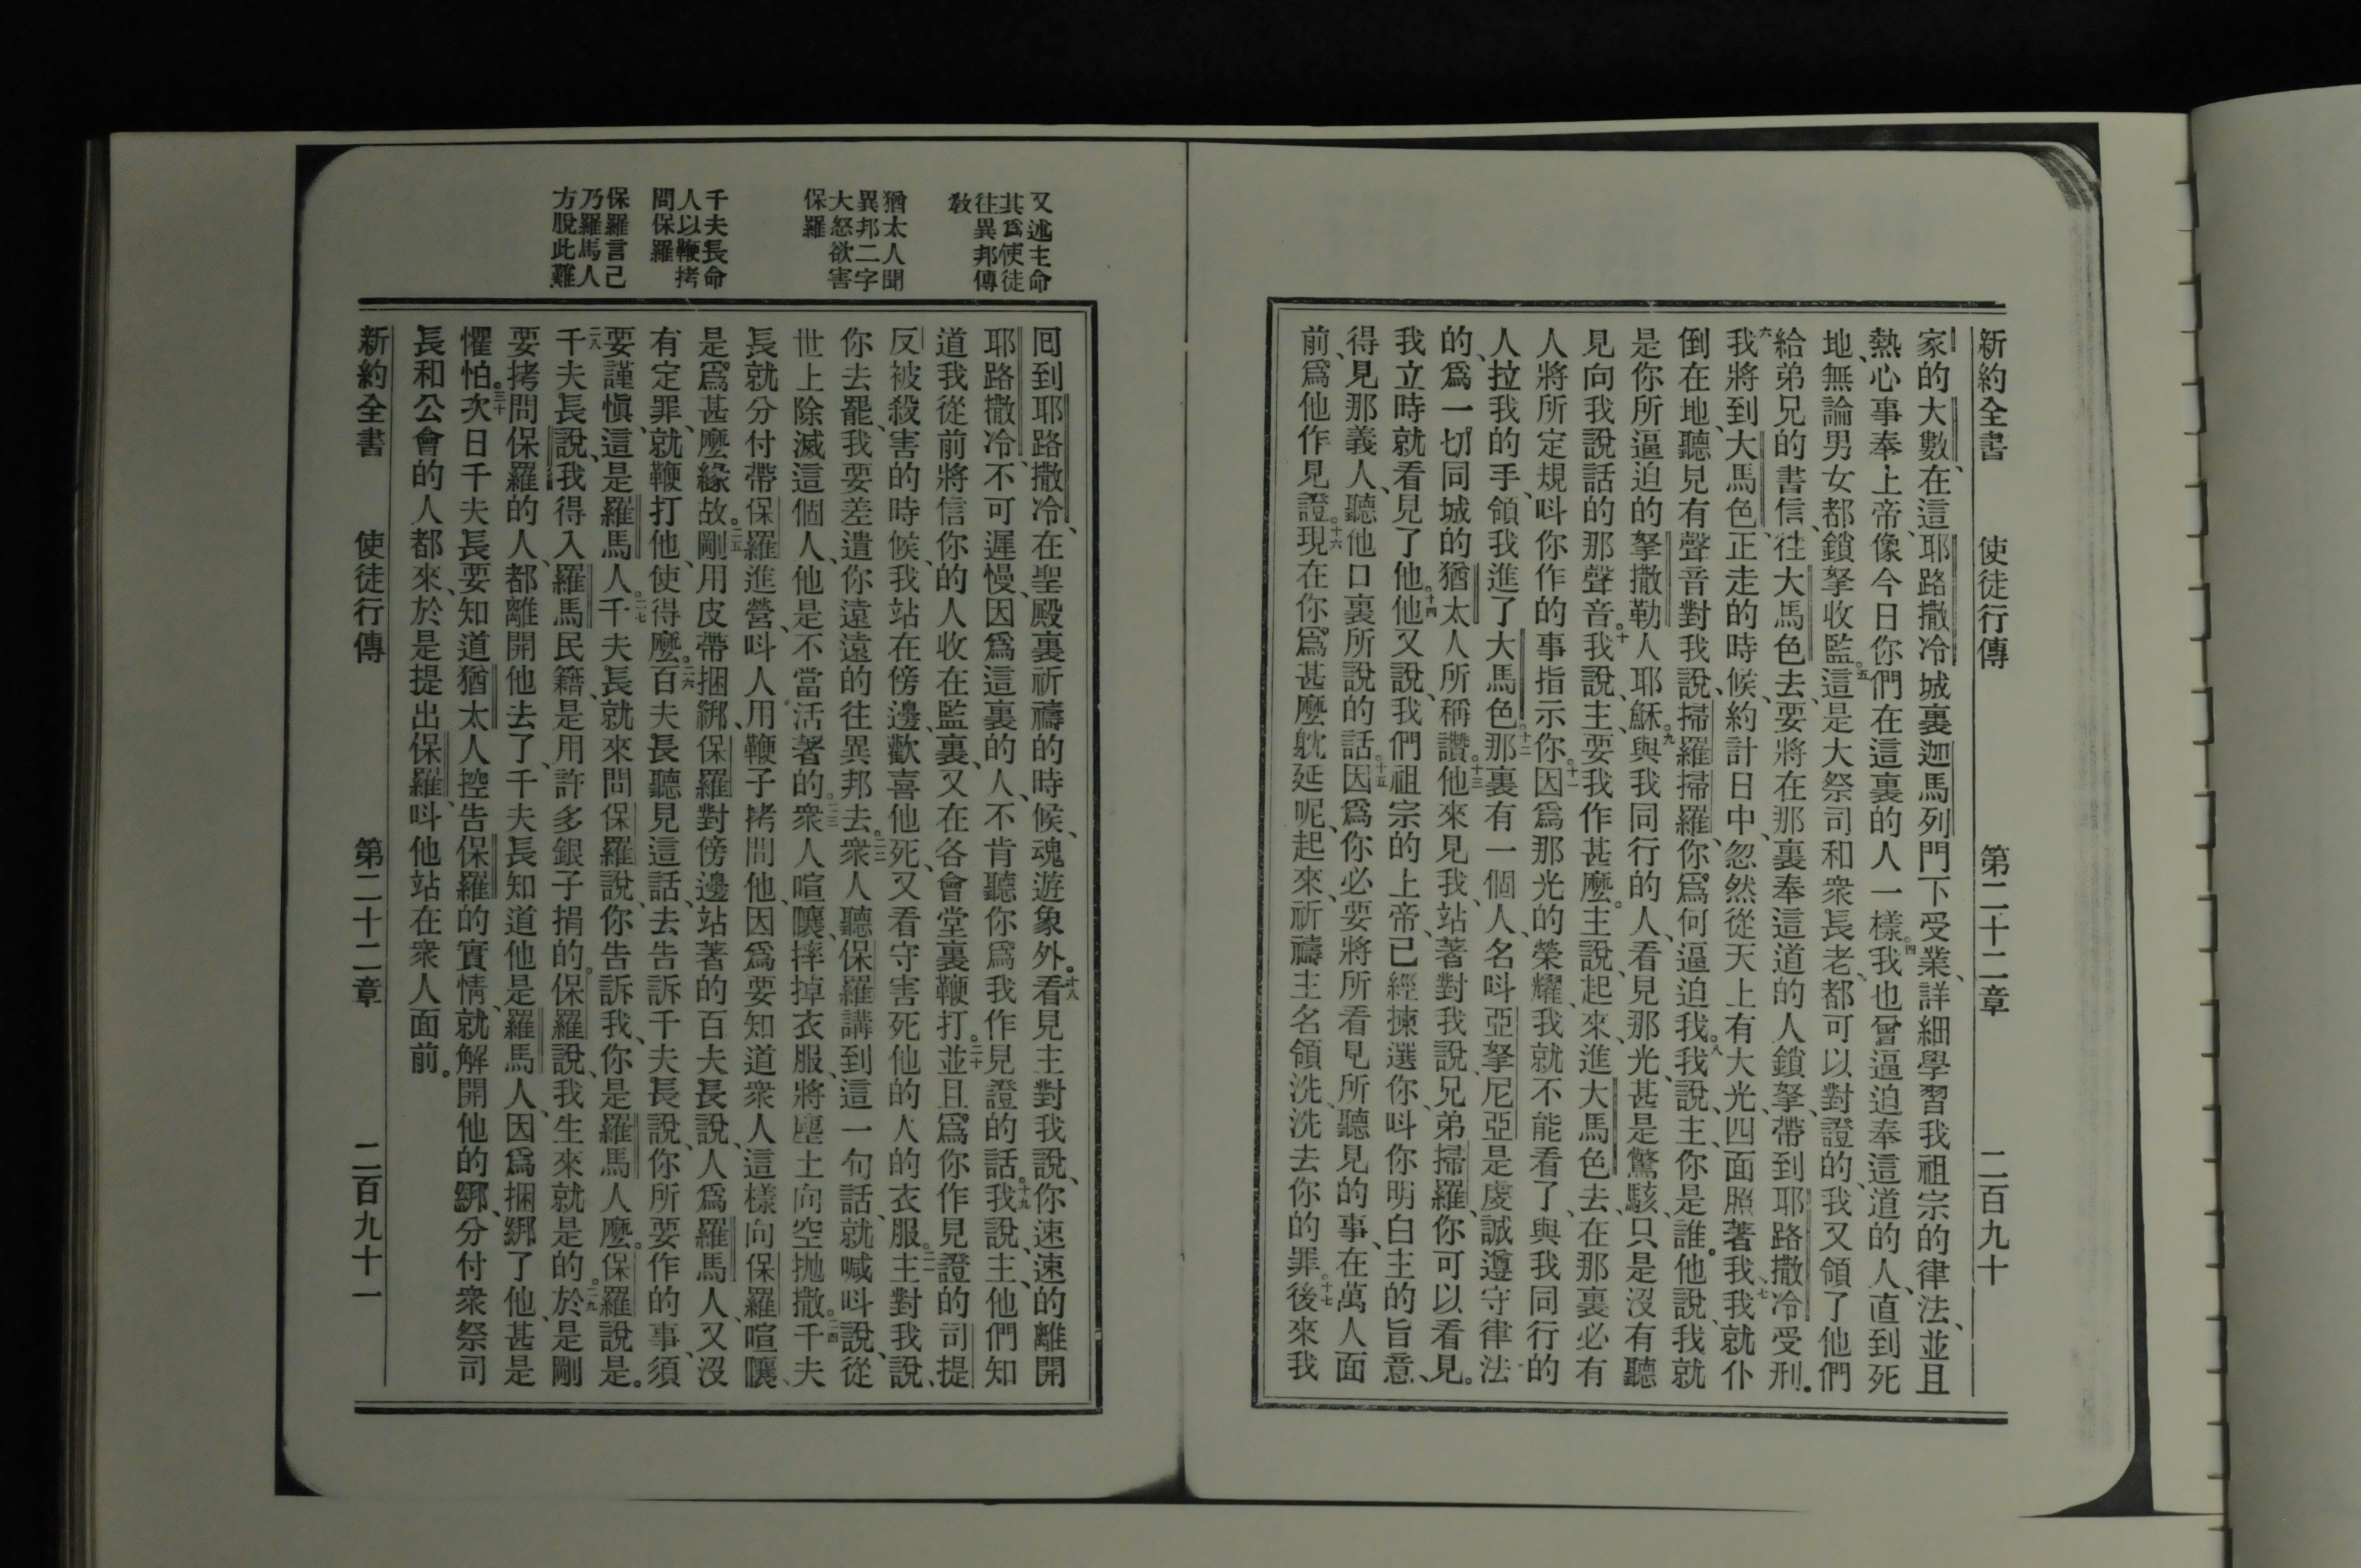 新約全書　使徒行傳　第二十二章　二百九十
家的大數、在這耶路撒冷城裏迦馬列門下受業、詳細學習我祖宗的律法、並且
熱心事奉上帝、像今日你們在這裏的人一樣。四我也曾逼迫奉這道的人、直到死
地、無論男女都鎖拏收監。五這是大祭司和衆長老、都可以對證的、我又領了他們
給弟兄的書信、往大馬色去、要將在那裏奉這道的人鎖拏、帶到耶路撒冷受刑。
六我將到大馬色、正走的時候、約計日中、忽然從天上有大光、四面照著我、七我就仆
倒在地、聽見有聲音對我說、掃羅掃羅、你爲何逼迫我。八我說、主、你是誰。他說、我就
是你所逼迫的拏撒勒人耶穌。九與我同行的人、看見那光、甚是驚駭、只是沒有聽
見向我說話的那聲音。十我說、主、要我作甚麼。主說、起來、進大馬色去、在那裏必有
人將所定規呌你作的事指示你。十一因爲那光的榮耀、我就不能看了、與我同行的
人拉我的手、領我進了大馬色。十二那裏有一個人、名呌亞拏尼亞、是虔誠遵守律法
的、爲一切同城的猶太人所稱讚。十三他來見我、站著對我說、兄弟掃羅、你可以看見。
我立時就看見了他。十四他又說、我們祖宗的上帝、已經揀選你、呌你明白主的旨意、
得見那義人、聽他口裏所說的話。十五因爲你必要將所看見所聽見的事、在萬人面
前、爲他作見證。十六現在你爲甚麼躭延呢、起來、祈禱主名領洗、洗去你的罪。十七後來我
又述主命
其爲使徒
往異邦傳
敎
猶太人聞
異邦二字
大怒欲害
保羅
千夫長命
人以鞭拷
問保羅
保羅言己
乃羅馬人
方脫此難
回到耶路撒冷、在聖殿裏祈禱的時候、魂遊象外。十八看見主對我說、你速速的離開
耶路撒冷、不可遲慢、因爲這裏的人、不肯聽你爲我作見證的話。十九我說、主、他們知
道我從前將信你的人收在監裏、又在各會堂裏鞭打。二十並且爲你作見證的司提
反被殺害的時候、我站在傍邊、歡喜他死、又看守害死他的人的衣服。二一主對我說、
你去罷、我要差遣你遠遠的往異邦去。二二衆人聽保羅講到這一句話、就喊呌說、從
世上除滅這個人、他是不當活著的。二三衆人喧嚷、摔掉衣服、將塵土向空抛撒。二四千夫
長就分付帶保羅進營、呌人用鞭子拷問他、因爲要知道衆人這樣向保羅喧嚷、
是爲甚麼緣故。二五剛用皮帶捆綁、保羅對傍邊站著的百夫長說、人爲羅馬人、又沒
有定罪、就鞭打他、使得麼。二六百夫長聽見這話、去告訴千夫長說、你所要作的事、須
要謹愼、這是羅馬人。二七千夫長就來問保羅說、你告訴我、你是羅馬人麼。保羅說是。
二八千夫長說、我得入羅馬民籍、是用許多銀子捐的。保羅說、我生來就是的。二九於是剛
要拷問保羅的人、都離開他去了、千夫長知道他是羅馬人、因爲捆綁了他、甚是
懼怕。三十次日千夫長要知道猶太人控告保羅的實情、就解開他的綁、分付衆祭司
長和公會的人都來、於是提出保羅、呌他站在衆人面前。
新約全書　使徒行傳　第二十二章　二百九十一